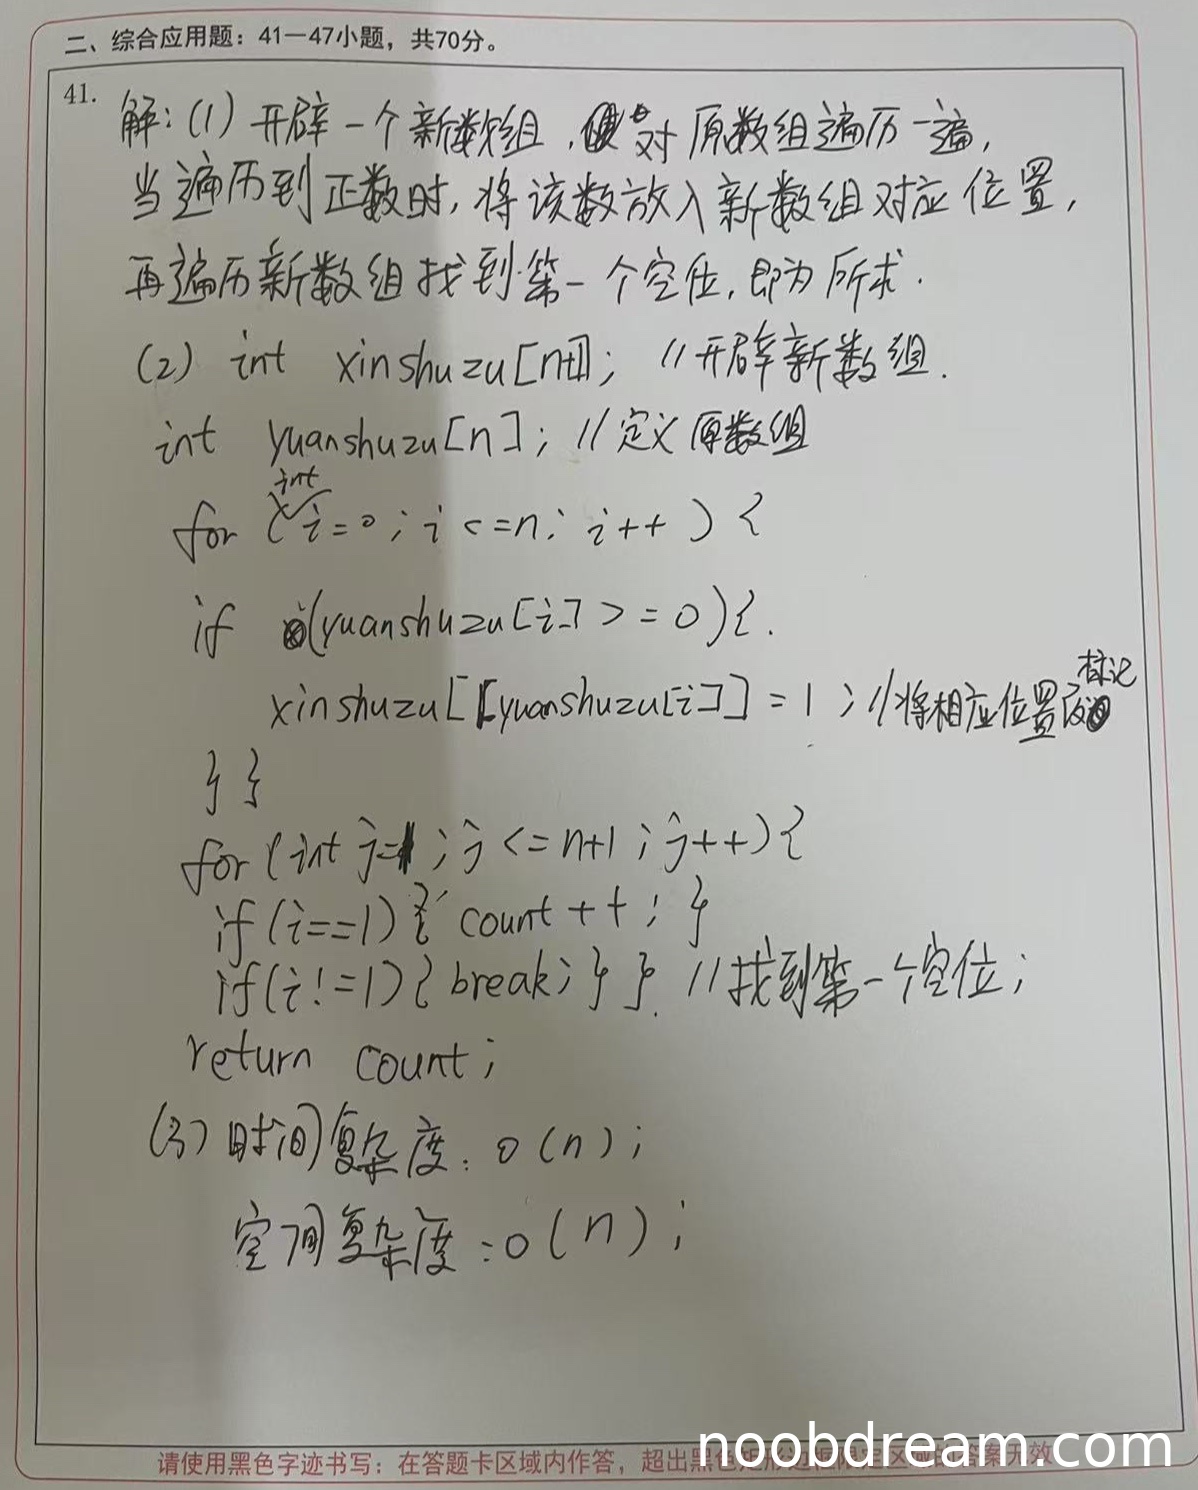 二、综合应用题：41—47小题，共70分。
41.
解:(1) 开辟一个新数组,对原数组遍历一遍,
当遍历到正数时,将该数放入新数组对应位置,
再遍历新数组找到第一个空位,即为所求.
(2) int xinshuzu[n+1]; //开辟新数组.
int yuanshuzu[n]; //定义原数组
for (int i=0; i<=n; i++) {
if (yuanshuzu[i]>=0){.
xinshuzu[[yuanshuzu[i]]=1; //将相应位置标记
} }
for(int j=1; j<=n+1; j++){
if(i==1){ count++; }
if(i!=1){ break; } }. //找到第一个空位;
return count;
(3) 时间复杂度: o(n);
空间复杂度: o(n);
请使用黑色字迹书写：在答题卡区域内作答，超出黑色矩形边框限定区域的答案无效
noobdream.com